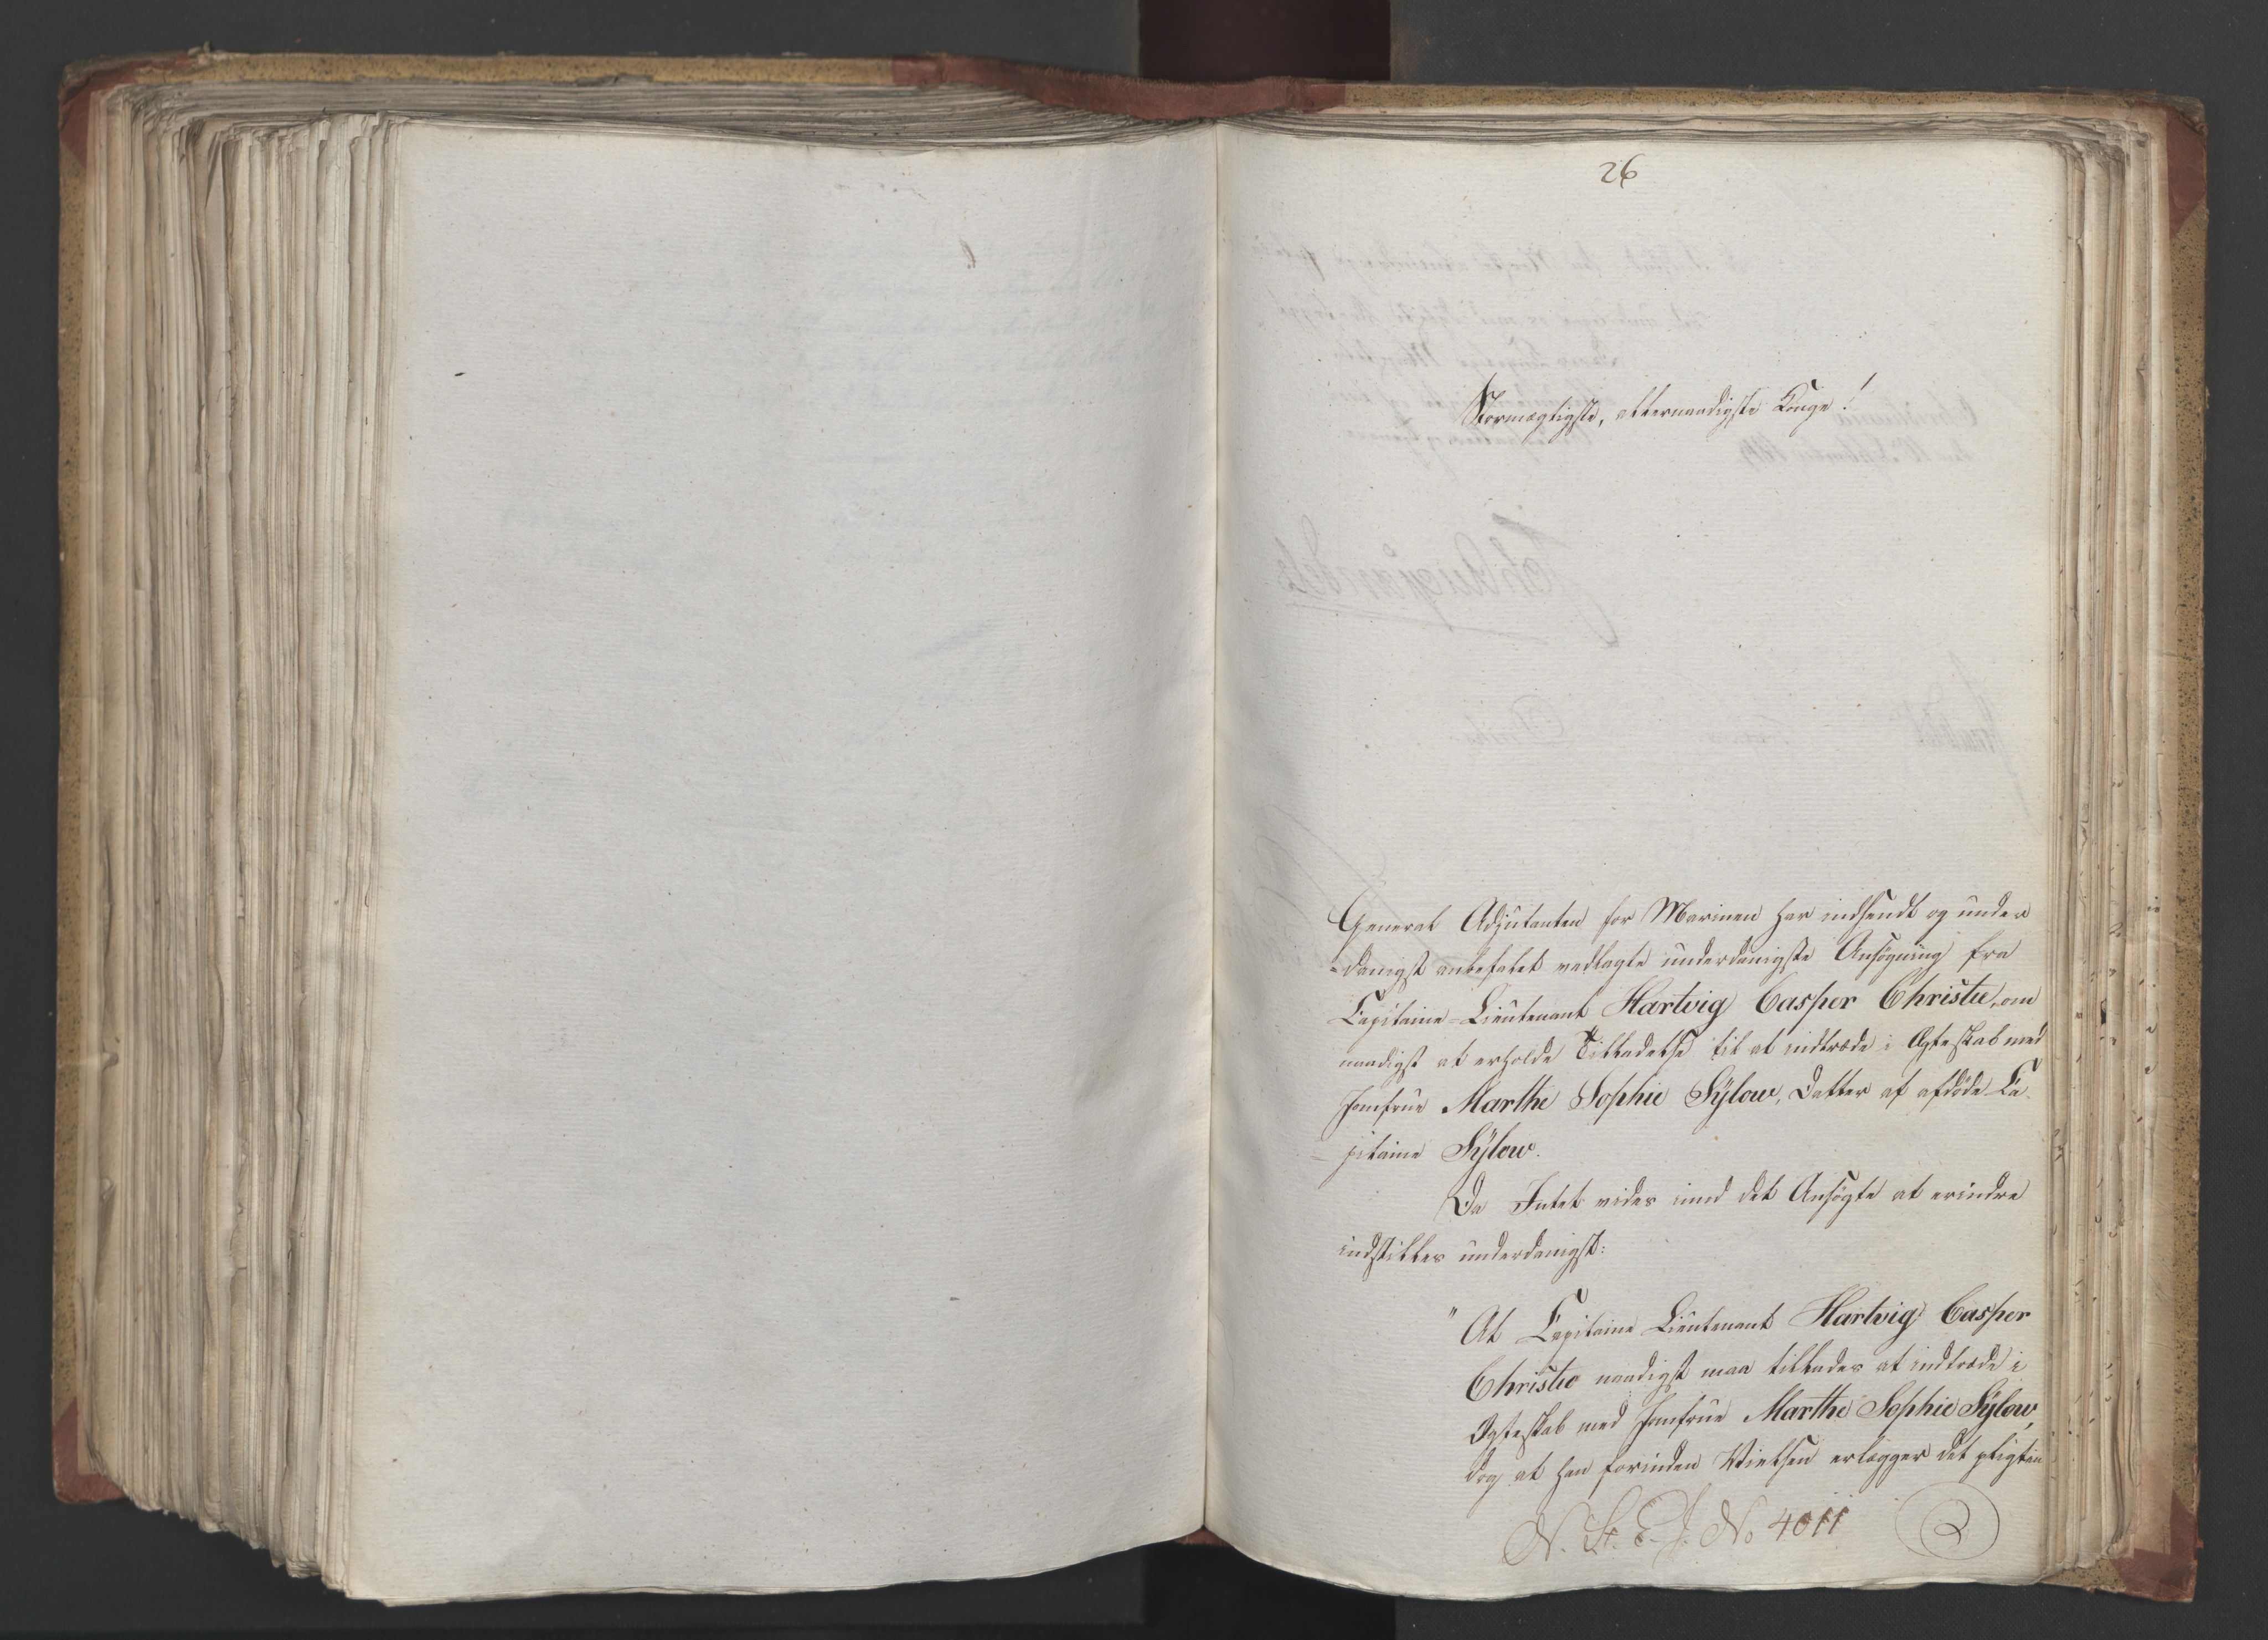 26
Stormægtigste, allernaadigste Konge!
General Adjutanten for Marinen har indsendt og under
-danigst anbefalet vedlagte underdanigste Ansøgning fra
Capitaine-Lieutenant Hartvig Casper Christie, om
naadigst at erholde Tilladelse til at indtræde i Ægteskab med
Jomfrue Marthe Sophie Sÿlow, Datter af afdøde Ca-
-pitaine Sÿlow.
Da Intet vides imod det Ansøgte at erindre
indstilles underdanigst:
"At Capitaine Lieutenant Hartvig Casper
Christie naadigst maa tillades at indtræde i
Ægteskab med Jomfrue Marthe Sophie Sÿlow,
dog at han forinden Vielsen erlægger det pligtige
N. St. E. J. No 4011